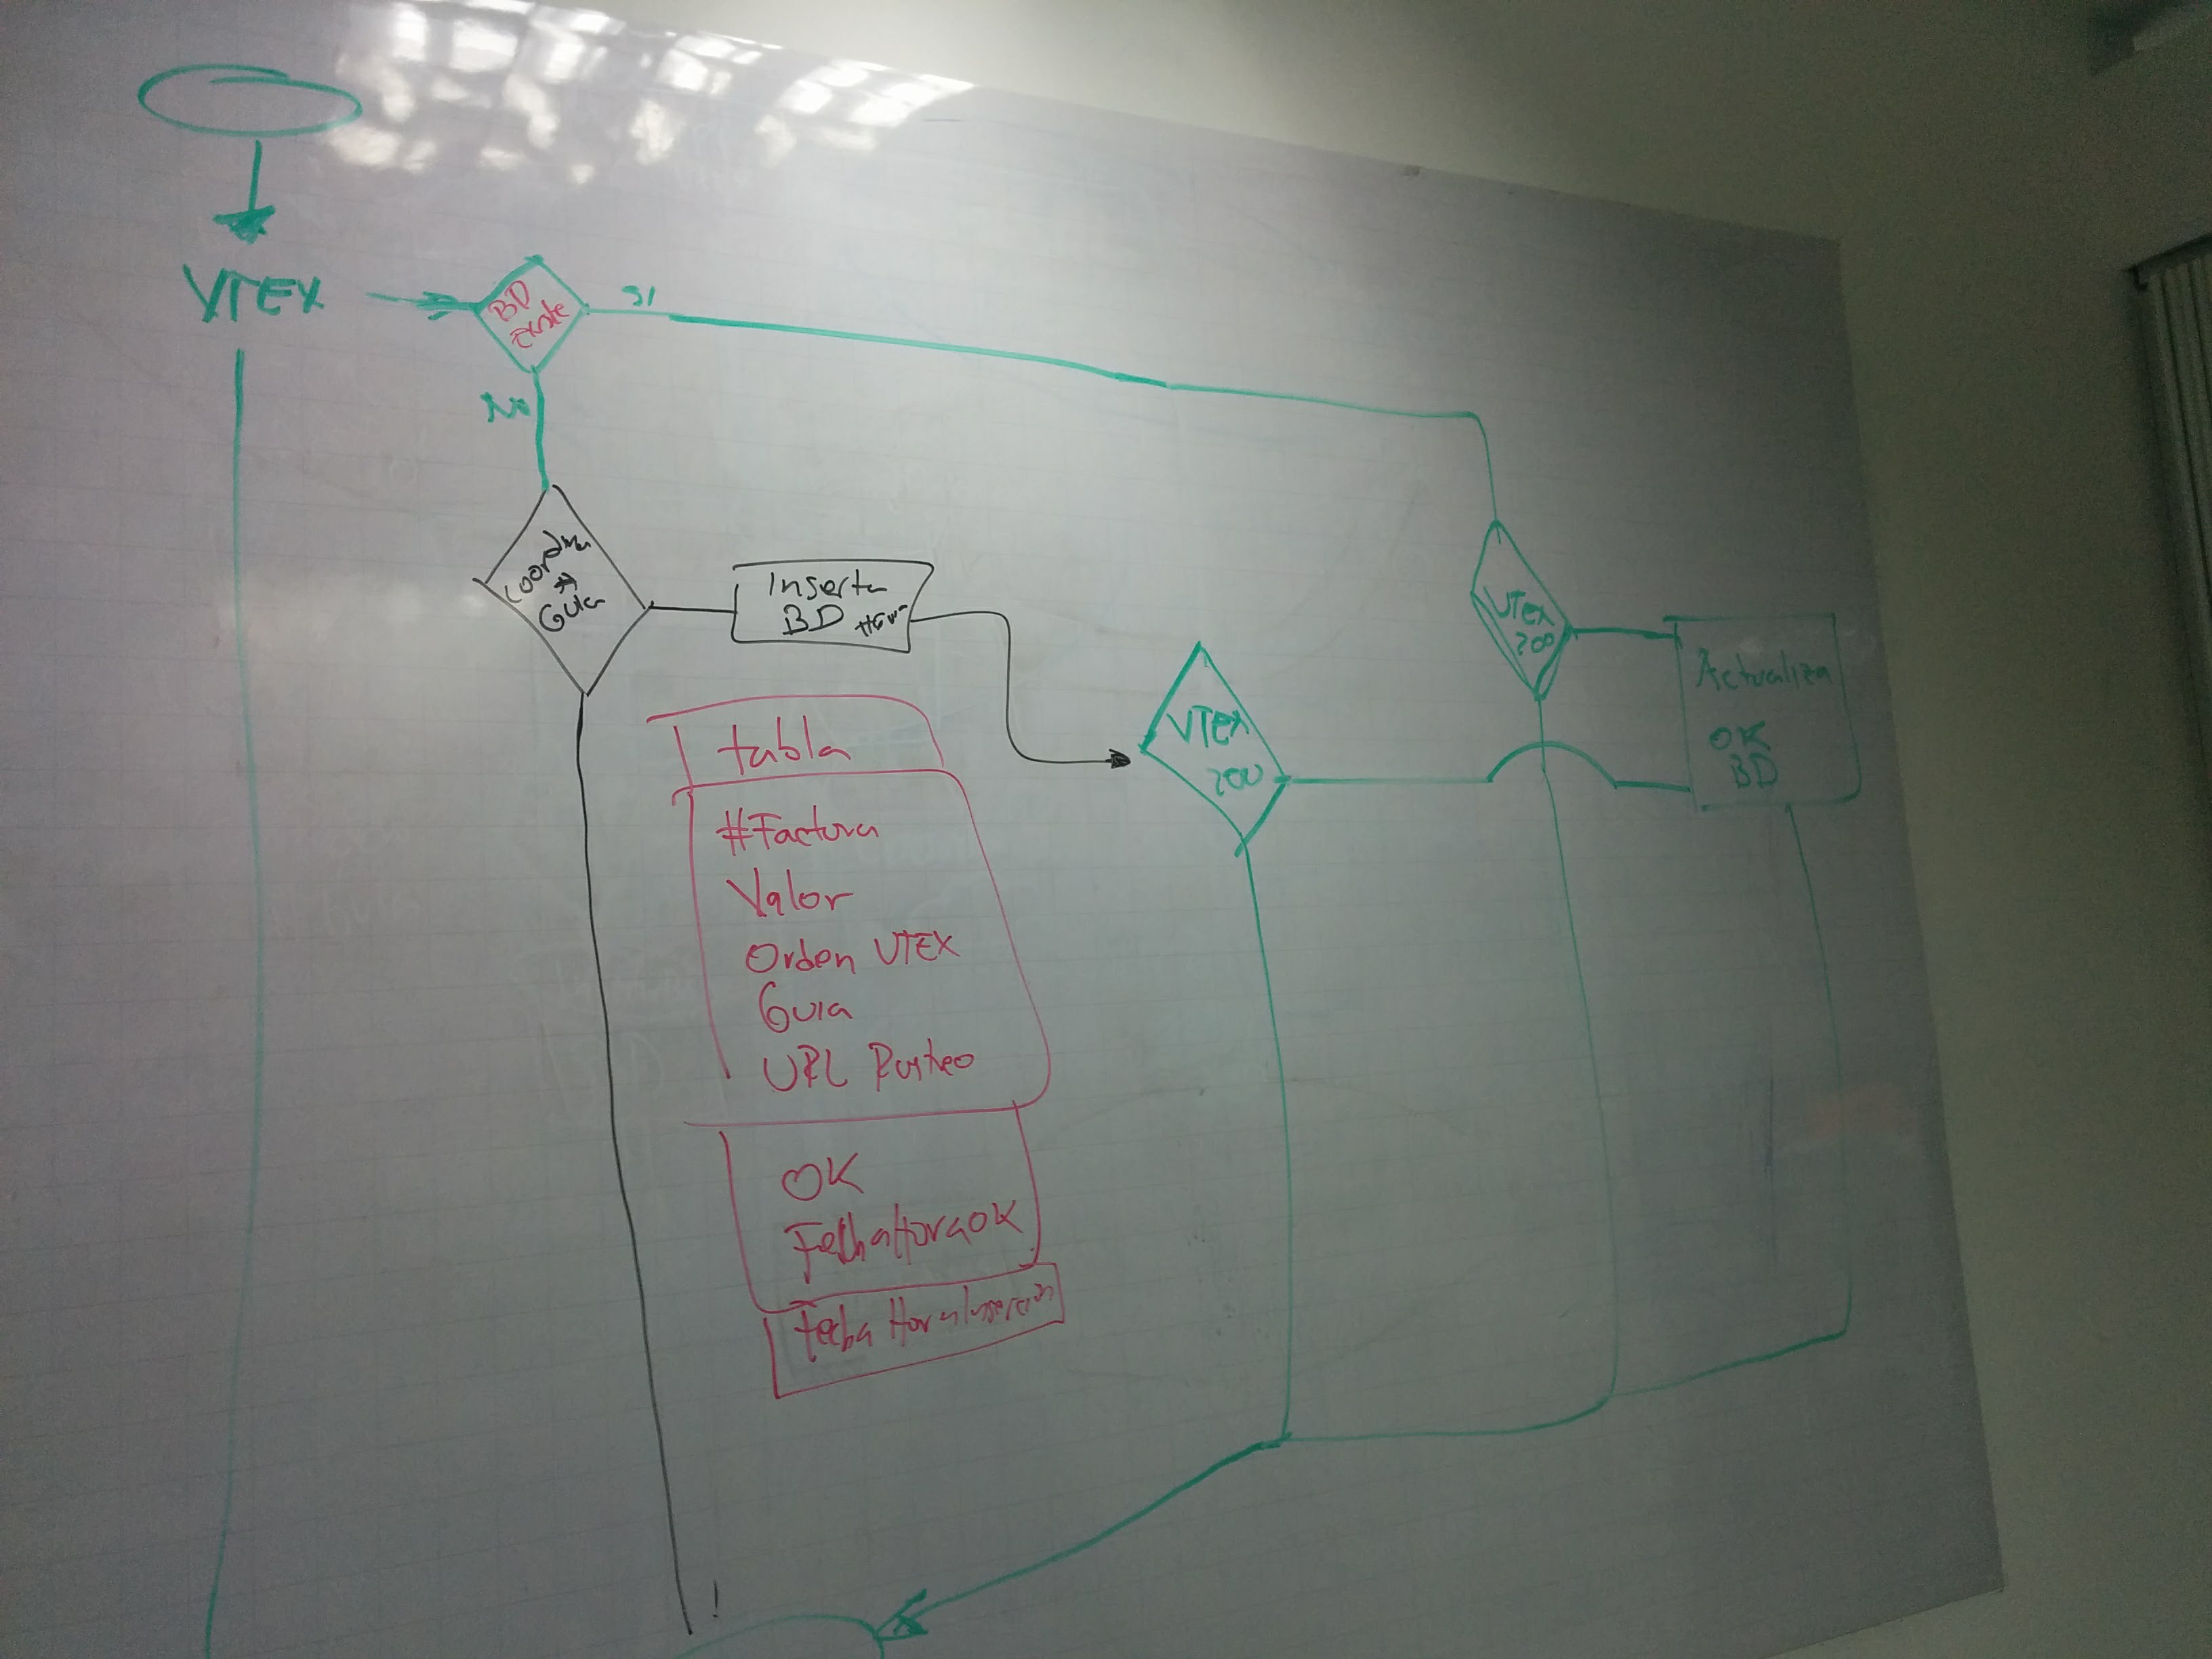 VTEX
BD
Existe
SI
No
Coordina
Guia
Inserta
BD
VTEX
200
VTEX
200
Actualiza
OK
BD
tabla
#Factura
Valor
Orden VTEX
Guia
URL Rastreo
OK
FechaHoraOK
Fecha HoraInsercion